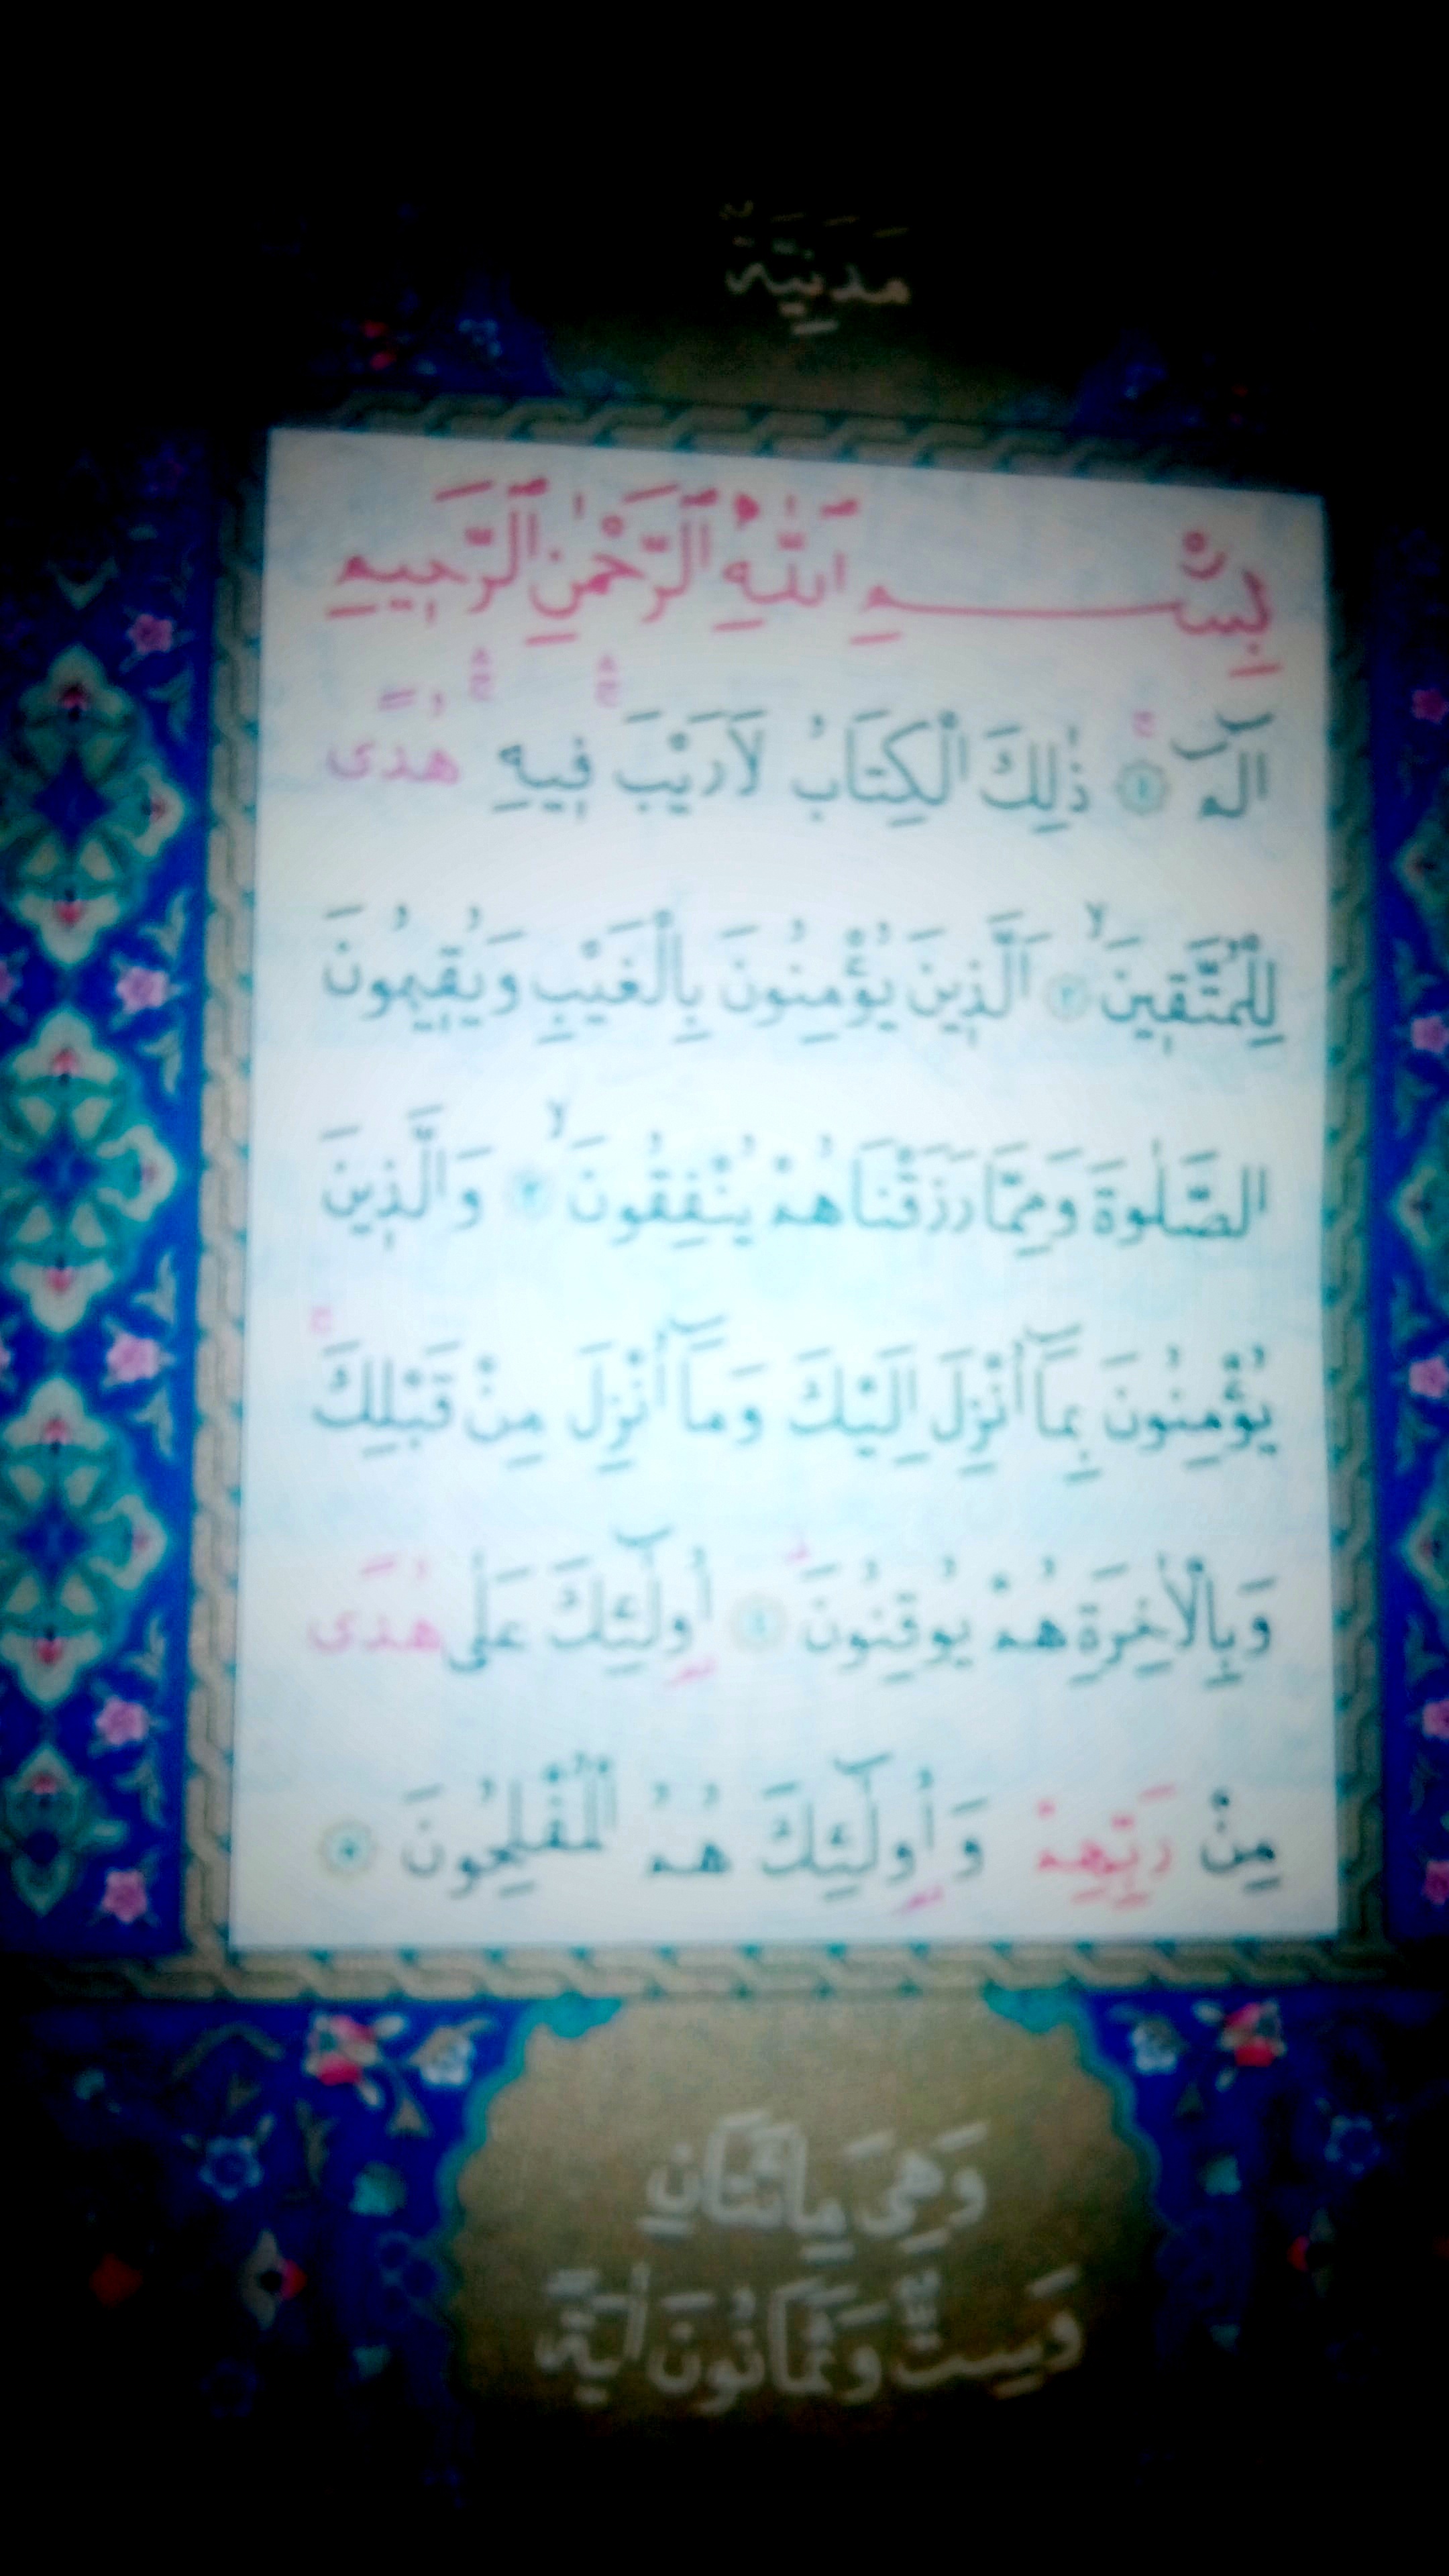 مَدَنِيَّةٌ
بِسْــــــمِ ٱللّٰهِ ٱلرَّحْمٰنِ ٱلرَّح۪يمِ
الٓمٓ ۚ ﴿١﴾ ذٰلِكَ الْكِتَابُ لَا رَيْبَ ۚۛ ف۪يهِ ۚۛ هُدًى
لِلْمُتَّق۪ينَۙ ﴿٢﴾ اَلَّذ۪ينَ يُؤْمِنُونَ بِالْغَيْبِ وَيُق۪يمُونَ
الصَّلٰوةَ وَمِمَّا رَزَقْنَاهُمْ يُنْفِقُونَۙ ﴿٣﴾ وَالَّذ۪ينَ
يُؤْمِنُونَ بِمَٓا اُنْزِلَ اِلَيْكَ وَمَٓا اُنْزِلَ مِنْ قَبْلِكَۚ
وَبِالْاٰخِرَةِ هُمْ يُوقِنُونَۜ ﴿٤﴾ اُو۬لٰٓئِكَ عَلٰى هُدًى
مِنْ رَبِّهِمْ وَاُو۬لٰٓئِكَ هُمُ الْمُفْلِحُونَ ﴿٥﴾
وَهِيَ مِائَتَانِ
وَسِتٌّ وَثَمَانُونَ اٰيَةً